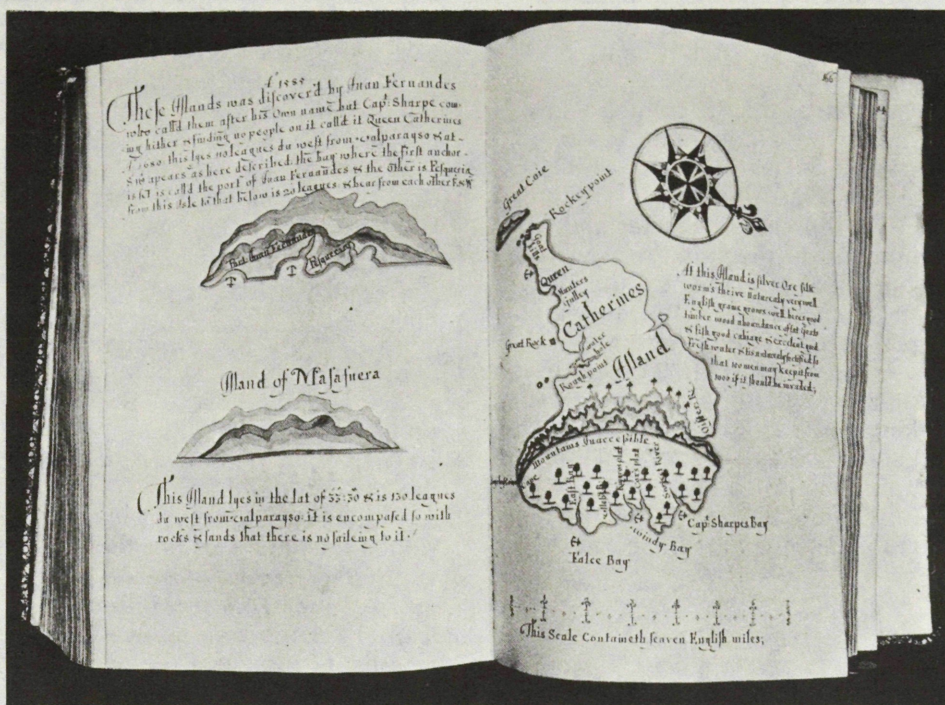 A° 1585
These Islands was discover'd by Juan Fernandes
who calld them after his Own name but Cap: Sharpe com-
ing hither & finding no people on it calld it Queen Catherines
A° 1680: this lyes no leagues du west from valparayso & at
& no apears as here described the bay where the first anchor
is set is calld the port of Juan Fernandes & the Other is Pesqueria
from this Isle to that below is 20 leagues & bear from each other E & W
Port Juan Fernandes
Pesqueria
Iland of Masafuera
This Iland lyes in the lat of 33:30 & is 130 leagues
du west from valparayso: it is encompased so with
rocks & sands that there is no saileing to it.
Great Coie
Rockey point
Queen
Catherines
Island
Great Rock
Rough point
Mountains Inaccessible
East Bay
Windy Bay
Cap: Sharpes Bay
False Bay
At this Iland is silver Ore silk
worms thrive naturaly very well
English graine grows well heres good
timber wood aboundance of fat Goats
& fish good cabiage & excelent good
fresh water & is so naturaly fortified so
that 100 men may keep it from
1000 if it should be invaded;
This Scale Containeth seaven English miles;